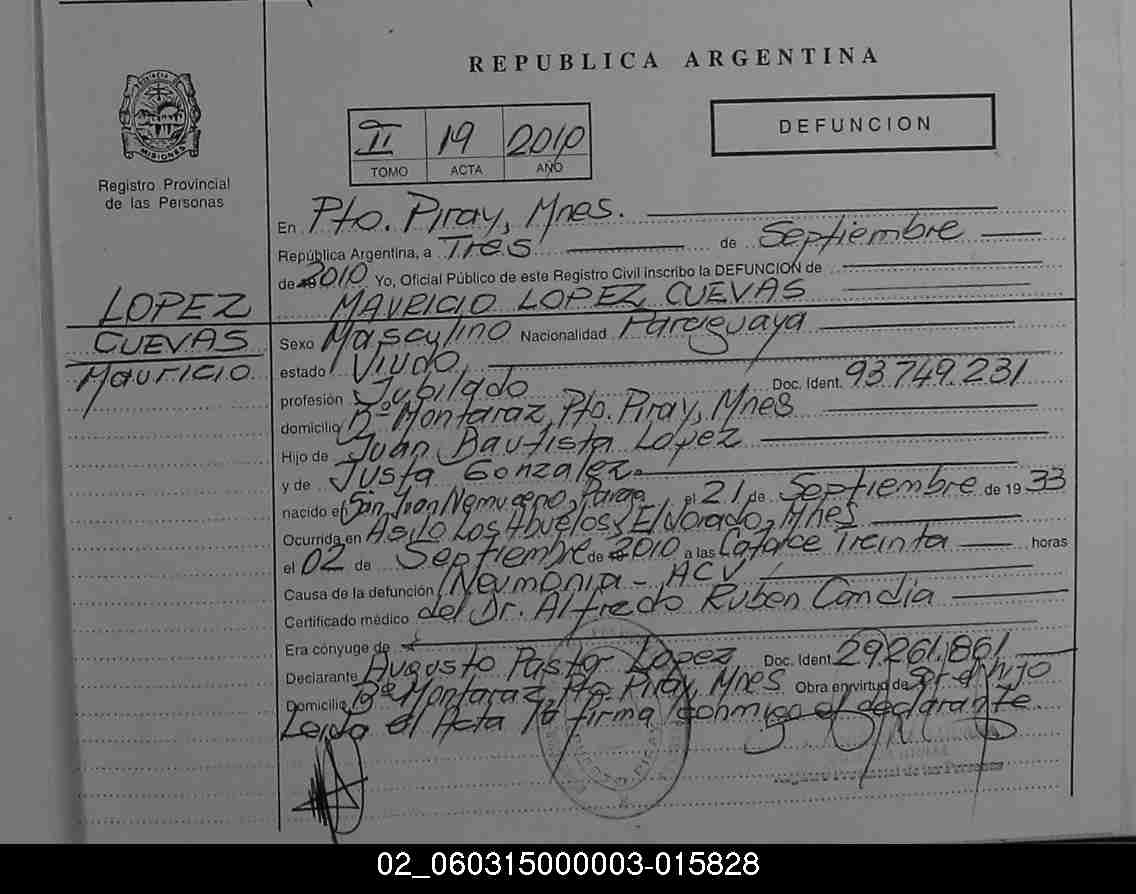 REPUBLICA ARGENTINA
PROVINCIA DE MISIONES
Registro Provincial
de las Personas
II 19 2010
TOMO ACTA AÑO
DEFUNCION
En Pto. Piray, Mnes.
República Argentina, a Tres de Septiembre
de 2010 Yo, Oficial Público de este Registro Civil inscribo la DEFUNCION de
MAURICIO LOPEZ CUEVAS
LOPEZ
CUEVAS
Mauricio
Sexo Masculino Nacionalidad Paraguaya
estado Viudo
profesión Jubilado Doc. Ident. 93.749.231
domicilio Bº Montaraz, Pto. Piray, Mnes
Hijo de Juan Bautista Lopez
y de Justa Gonzalez.
nacido en San Juan Nemuceno, el 21 de Septiembre de 1933
Ocurrida en Asilo Los Abuelos, Eldorado, Mnes
el 02 de Septiembre de 2010 a las Catorce Treinta horas
Causa de la defunción Neumonia - ACV
Certificado médico del Dr. Alfredo Ruben Candia
Era cónyuge de
Declarante Augusto Pastor Lopez Doc. Ident. 29.261.861
Domicilio Bº Montaraz, Pto. Piray, Mnes Obra en virtud de Ser el hijo
Leida el Acta la firma conmigo el declarante
PUERTO PIRAY
Registro Provincial de las Personas
02_060315000003-015828